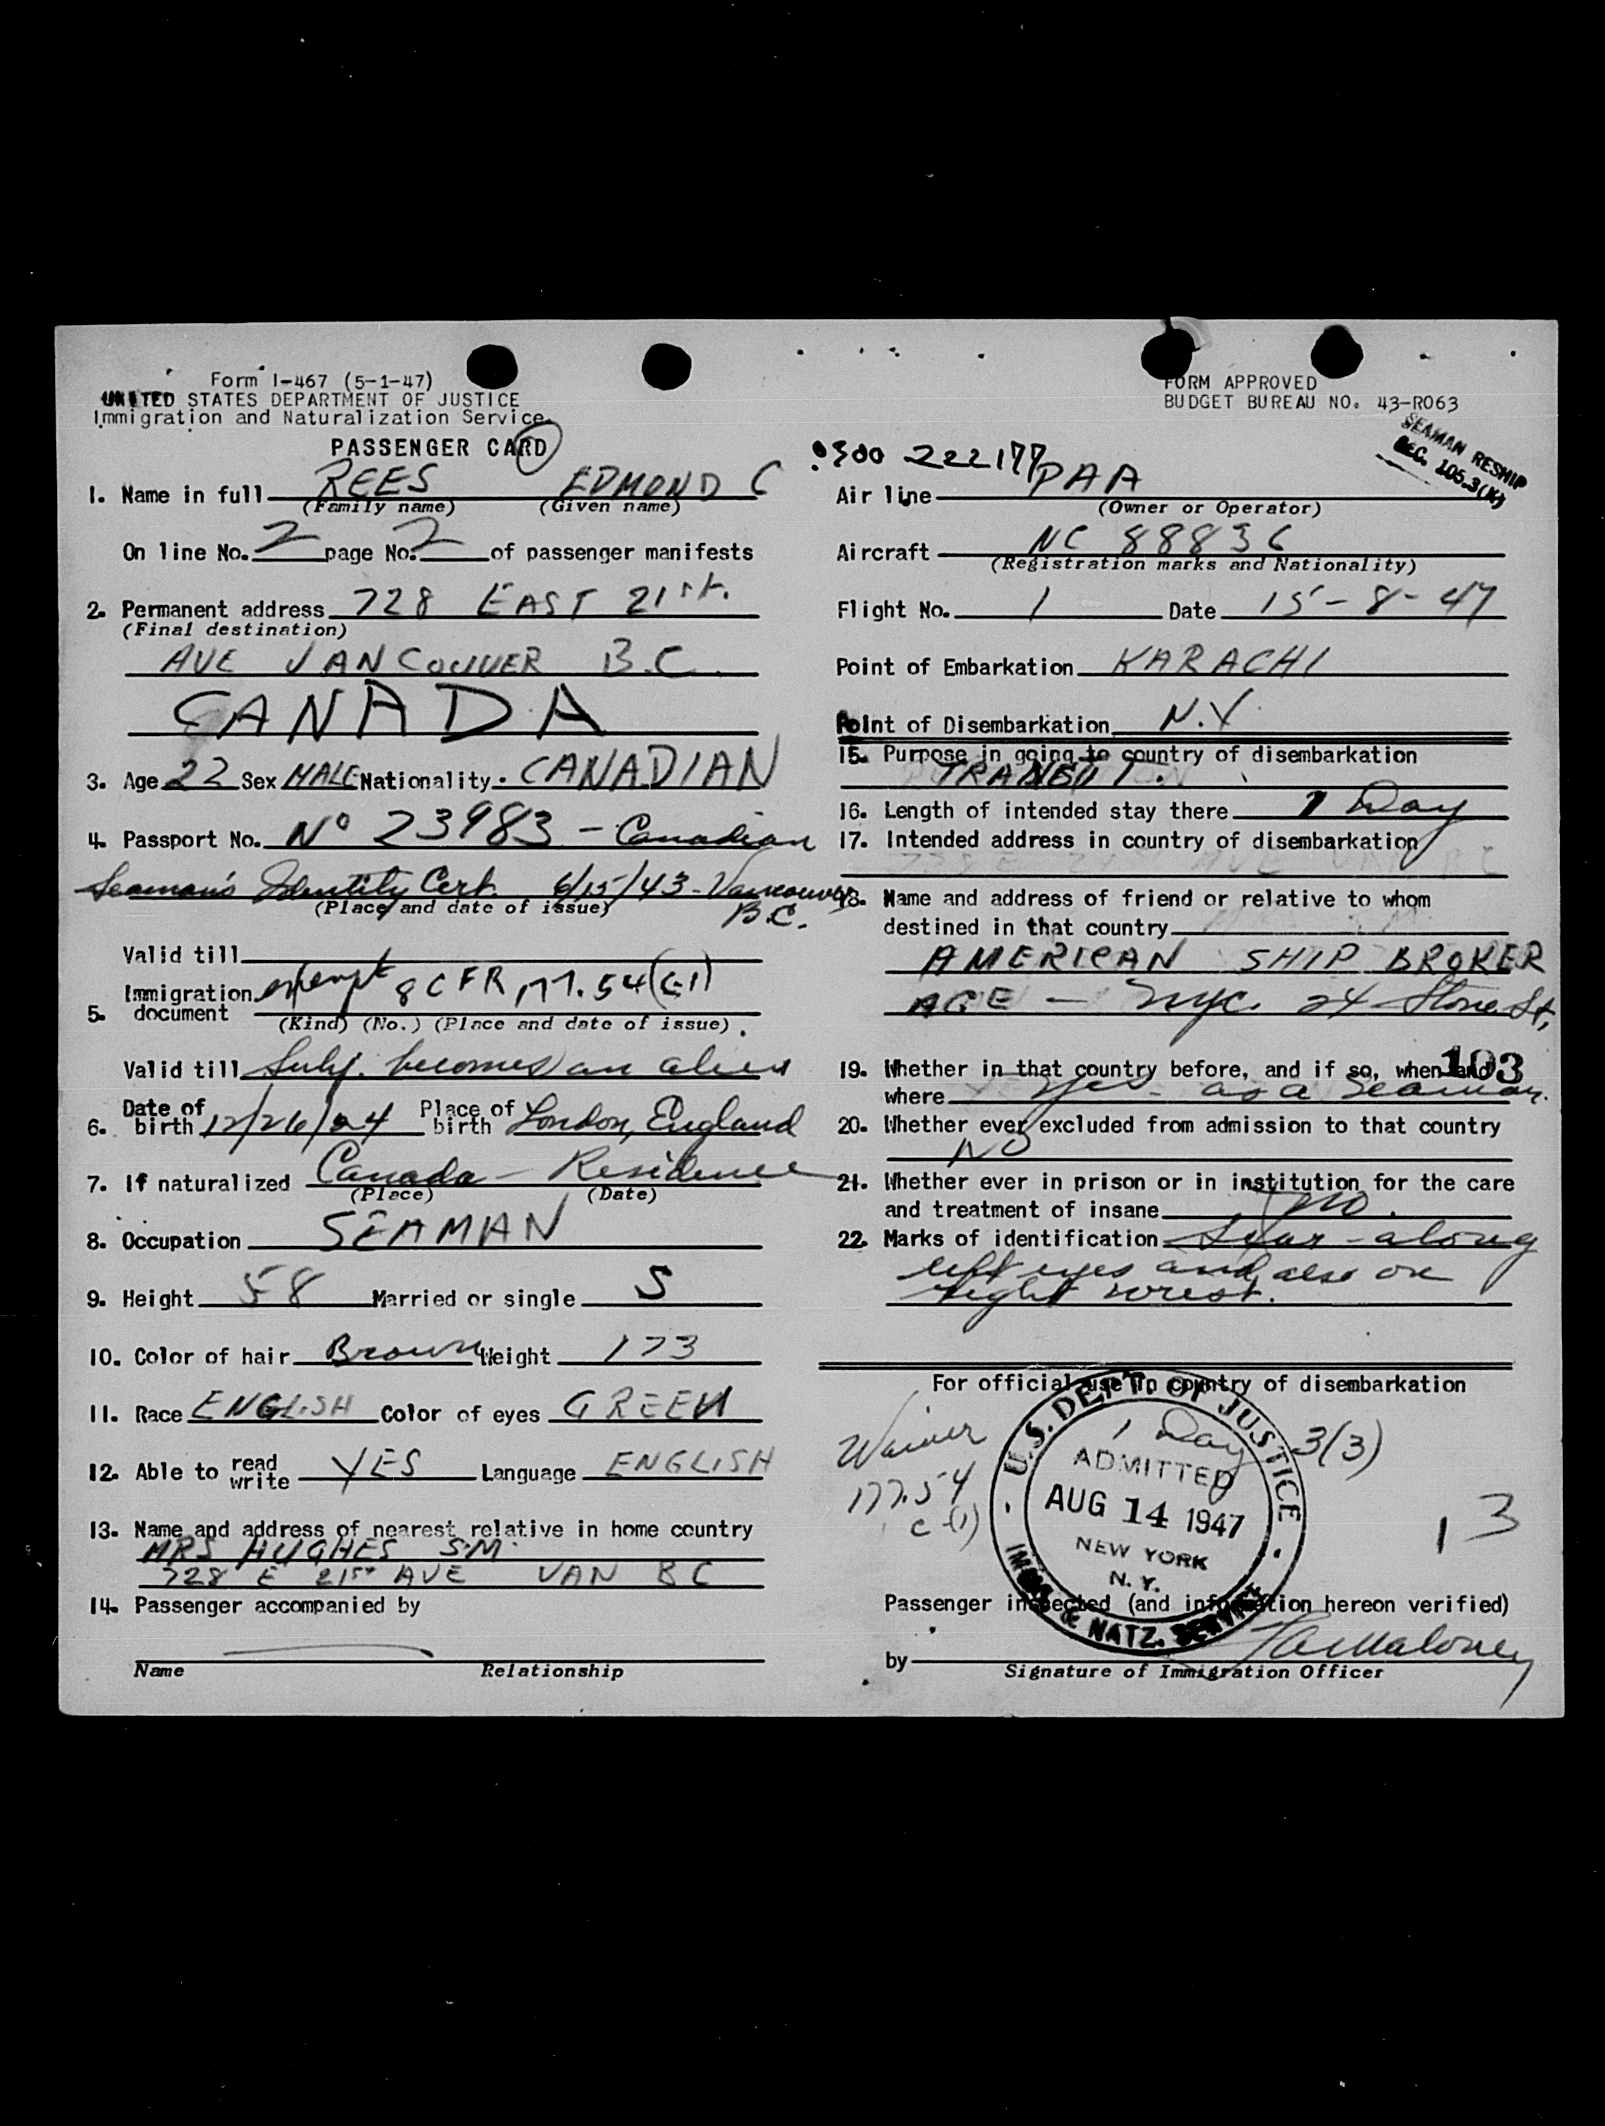 Form I-467 (5-1-47)
UNITED STATES DEPARTMENT OF JUSTICE
Immigration and Naturalization Service
PASSENGER CARD
1. Name in full REES EDMOND C
(Family name) (Given name)
On line No. 2 page No. 2 of passenger manifests
2. Permanent address 728 EAST 21st.
(Final destination)
AVE VANCOUVER B.C.
CANADA
3. Age 22 Sex MALE Nationality CANADIAN
4. Passport No. Nº 23983 - Canadian
Seaman's Identity Cert. 6/15/43 - Vancouver
(Place and date of issue) B.C.
Valid till
5. Immigration document exempt 8 CFR 177.54(c-1)
(Kind) (No.) (Place and date of issue)
Valid till Subj. becomes an alien
6. Date of birth 12/26/24 Place of birth London, England
7. If naturalized Canada - Residence
(Place) (Date)
8. Occupation SEAMAN
9. Height 58 Married or single S
10. Color of hair Brown Weight 173
11. Race ENGLISH Color of eyes GREEN
12. Able to read write YES Language ENGLISH
13. Name and address of nearest relative in home country
MRS HUGHES S.M.
728 E 21ST AVE VAN B C
14. Passenger accompanied by
Name Relationship
FORM APPROVED
BUDGET BUREAU NO. 43-R063
SEAMAN RESHIP
SEC. 105.3(K)
0300 222177
Air line PAA
(Owner or Operator)
Aircraft NC 88836
(Registration marks and Nationality)
Flight No. 1 Date 15-8-47
Point of Embarkation KARACHI
Point of Disembarkation N.Y.
15. Purpose in going to country of disembarkation
TRANSIT.
16. Length of intended stay there 1 Day
17. Intended address in country of disembarkation
728 E 21ST AVE VAN BC
18. Name and address of friend or relative to whom
destined in that country
AMERICAN SHIP BROKER
AGE - NYC. 24 Stone St,
19. Whether in that country before, and if so, when and
193
where Yes - as a Seaman.
20. Whether ever excluded from admission to that country
NO
21. Whether ever in prison or in institution for the care
and treatment of insane no.
22. Marks of identification Scar - along
left eyes and also on
right wrist.
For official use in country of disembarkation
Waiver
177.54
c-(1)
U.S. DEPT. OF JUSTICE
1 Day 3(3)
ADMITTED
AUG 14 1947
NEW YORK
N.Y.
IMMIG. & NATZ. SERVICE
13
Passenger inspected (and information hereon verified)
by Maloney
Signature of Immigration Officer